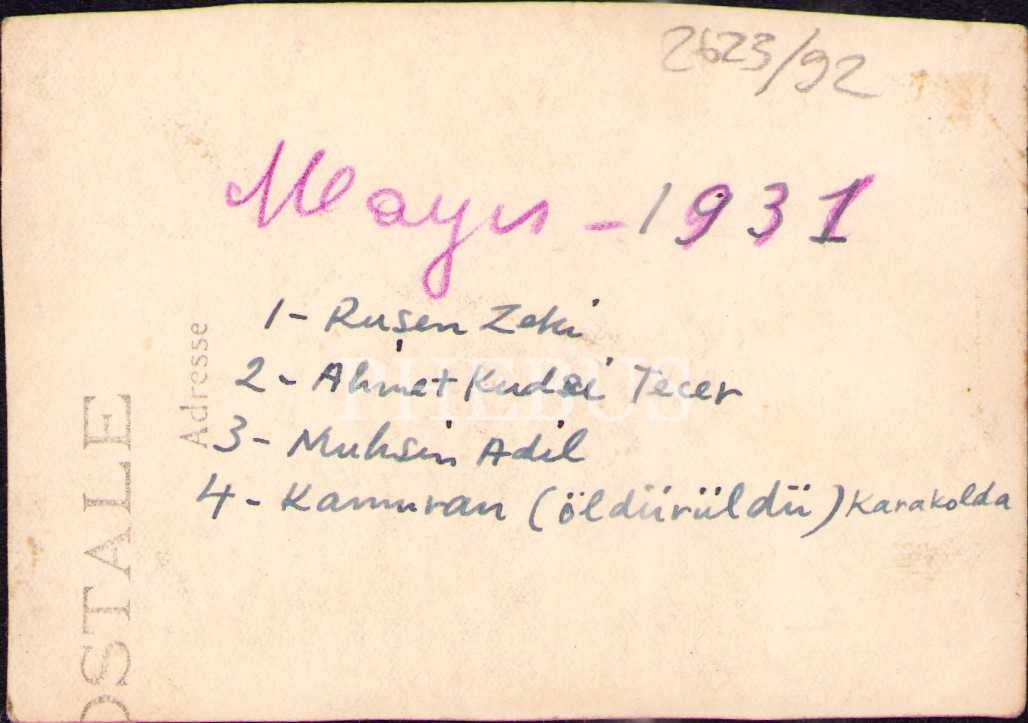 2623/92
Mayıs - 1931
1- Ruşen Zeki
2- Ahmet Kudsi Tecer
3- Muhsin Adil
4- Kamuran (öldürüldü) Karakolda
Adresse
OSTALE
PHEBUS